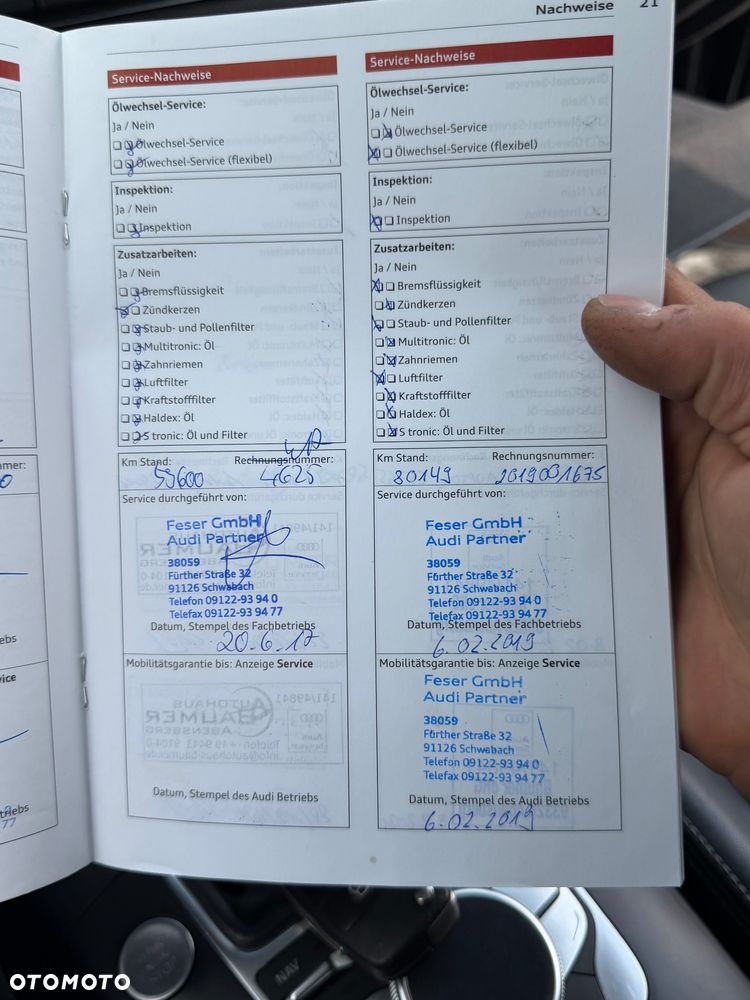 Nachweise 21
Service-Nachweise
Ölwechsel-Service:
Ja / Nein
Ölwechsel-Service
Ölwechsel-Service (flexibel)
Inspektion:
Ja / Nein
Inspektion
Zusatzarbeiten:
Ja / Nein
Bremsflüssigkeit
Zündkerzen
Staub- und Pollenfilter
Multitronic: Öl
Zahnriemen
Luftfilter
Kraftstofffilter
Haldex: Öl
S tronic: Öl und Filter
Km Stand: Rechnungsnummer:
59600 4625
Service durchgeführt von:
Feser GmbH
Audi Partner
38059
Further Straße 32
91126 Schwabach
Telefon 09122-93 94 0
Telefax 09122-93 94 77
Datum, Stempel des Fachbetriebs
20.6.17
Mobilitätsgarantie bis: Anzeige Service
Datum, Stempel des Audi Betriebs
Service-Nachweise
Ölwechsel-Service:
Ja / Nein
Ölwechsel-Service
Ölwechsel-Service (flexibel)
Inspektion:
Ja / Nein
Inspektion
Zusatzarbeiten:
Ja / Nein
Bremsflüssigkeit
Zündkerzen
Staub- und Pollenfilter
Multitronic: Öl
Zahnriemen
Luftfilter
Kraftstofffilter
Haldex: Öl
S tronic: Öl und Filter
Km Stand: Rechnungsnummer:
80149 2019001675
Service durchgeführt von:
Feser GmbH
Audi Partner
38059
Fürther Straße 32
91126 Schwabach
Telefon 09122-93 94 0
Telefax 09122-93 94 77
Datum, Stempel des Fachbetriebs
6.02.2019
Mobilitätsgarantie bis: Anzeige Service
Feser GmbH
Audi Partner
38059
Fürther Straße 32
91126 Schwabach
Telefon 09122-93 94 0
Telefax 09122-93 94 77
Datum, Stempel des Audi Betriebs
6.02.2019
NAV
OTOMOTO